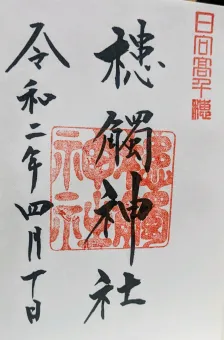 日向髙千穗
槵觸神社
令和二年四月十日
槵觸
神社